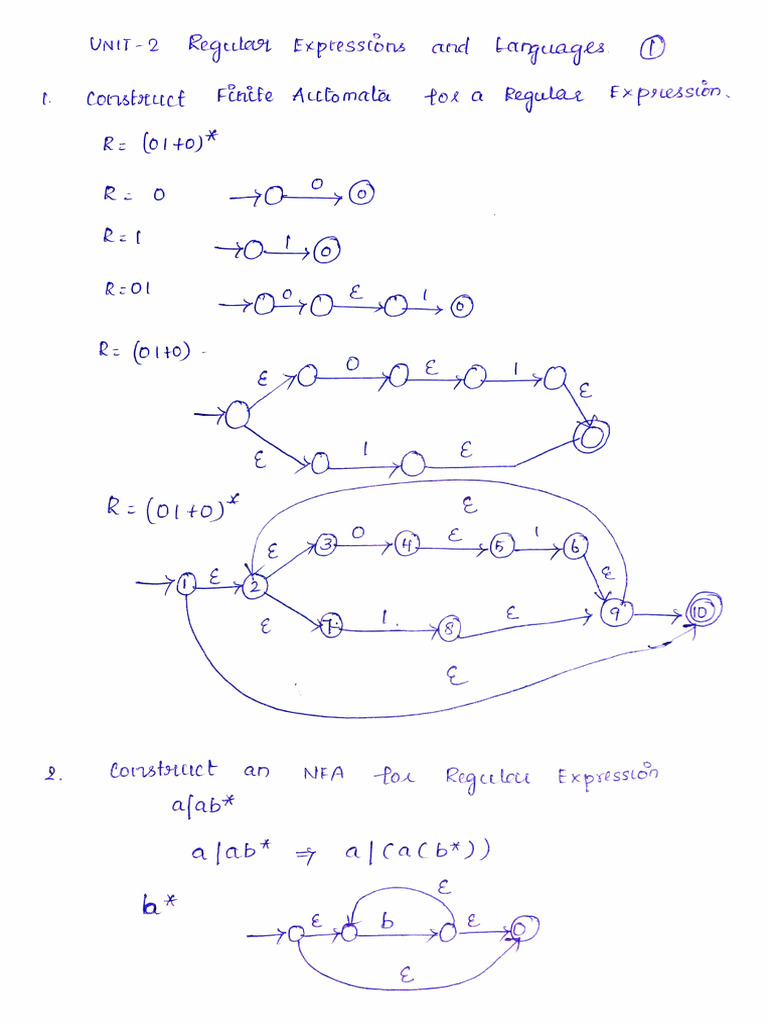 UNIT-2 Regular Expressions and Languages. 1
1. Construct Finite Automata for a Regular Expression.
R = (01+0)*
R = 0 0 0
R = 1 1 0
R = 01 0 ε 1 0
R = (01+0) -
ε 0 ε 1 ε
ε 1 ε
R = (01+0)* ε
ε 3 0 4 ε 5 1 6 ε
1 ε 2 9 10
ε 7 1. 8 ε
ε
2. Construct an NFA for Regular Expression
a/ab*
a/ab* ⇒ a/(a(b*))
b* ε
ε b ε 0
ε